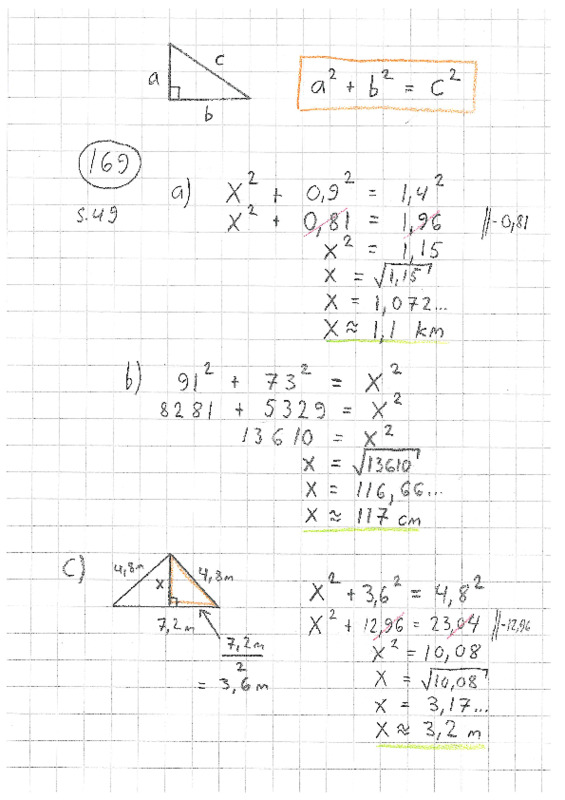 a c b
a² + b² = c²
169
s.49
a) x² + 0,9² = 1,4²
x² + 0,81 = 1,96 ||-0,81
x² = 1,15
x = √1,15
x = 1,072...
x ≈ 1,1 km
b) 91² + 73² = x²
8281 + 5329 = x²
13610 = x²
x = √13610
x = 116,66...
x ≈ 117 cm
c) 4,8m x 4,8m
7,2m
7,2m/2
= 3,6 m
x² + 3,6² = 4,8²
x² + 12,96 = 23,04 ||-12,96
x² = 10,08
x = √10,08
x = 3,17...
x ≈ 3,2 m